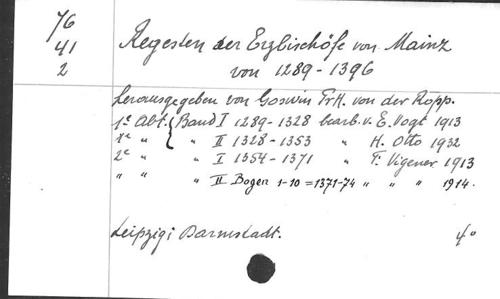 76
41
2
Regesten der Erzbischöfe von Mainz
von 1289-1396
herausgegeben von Goswin Frh. von der Ropp.
1e Abt. { Band I 1289-1328 bearb. v. E. Vogt 1913
1e " " II 1328-1353 " H. Otto 1932
2e " " I 1354-1371 " F. Vigener 1913
" " " II Bogen 1-10 = 1371-74 " " " 1914.
Leipzig; Darmstadt. 4°